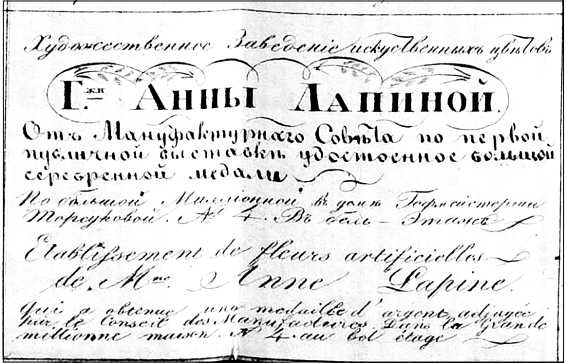 Художественное Заведенiе искуственныхъ цвѣтовъ
Г.жи АННЫ ЛАПИНОЙ.
Отъ Мануфактурнаго Совѣта по первой
публичной выставкѣ удостоенное большой
серебренной медали
По большой Миллiонной въ домѣ Гофмейстерши
Торсуковой. № 4. Въ бель-Этажѣ
Etablissement de fleurs artificielles
de Mme Anne Lapine.
Qui a obtenue une medaille d'argent adjugée
par le Conseil des Manufactures. Dans la Grande
millionne maison № 4. au bel étage